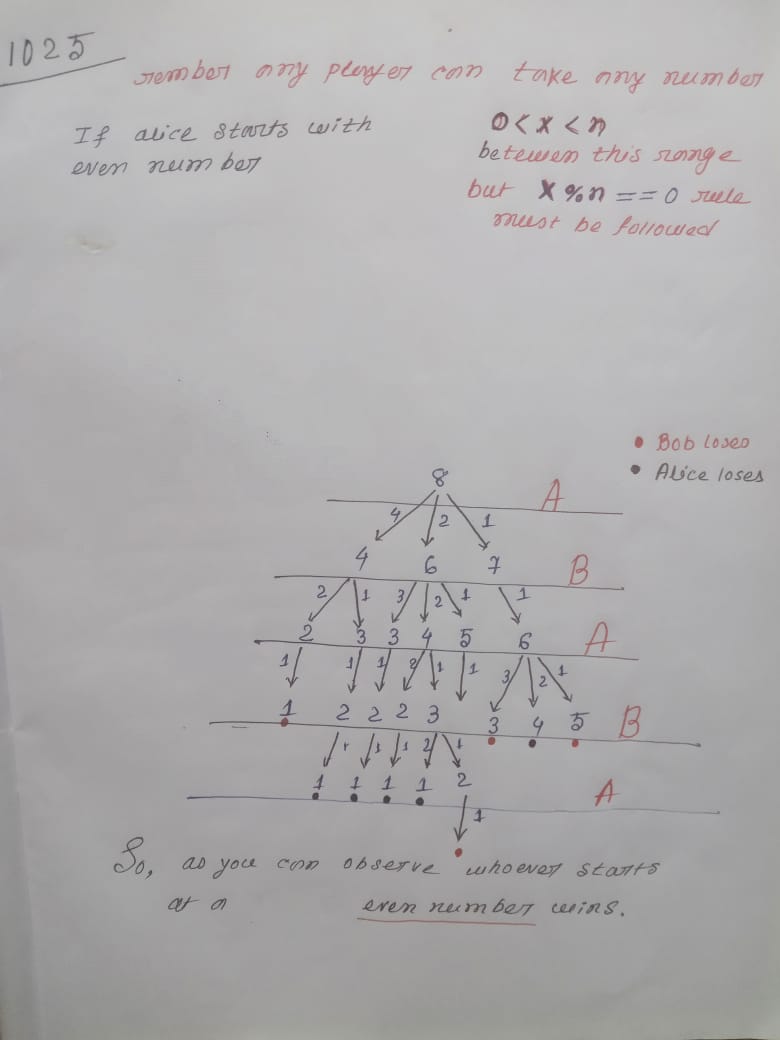 1025
remember any player can take any number
If alice starts with
even number
0 < x < n
between this range
but x % n == 0 rule
must be followed
• Bob loses
• Alice loses
8 A
4 2 1
4 6 7 B
2 1 3 2 1 1
2 3 3 4 5 6 A
1 1 1 2 1 1 3 2 1
1 2 2 2 3 3 4 5 B
1 1 1 2 1
1 1 1 1 2 A
1
So, as you can observe whoever starts
at a even number wins.